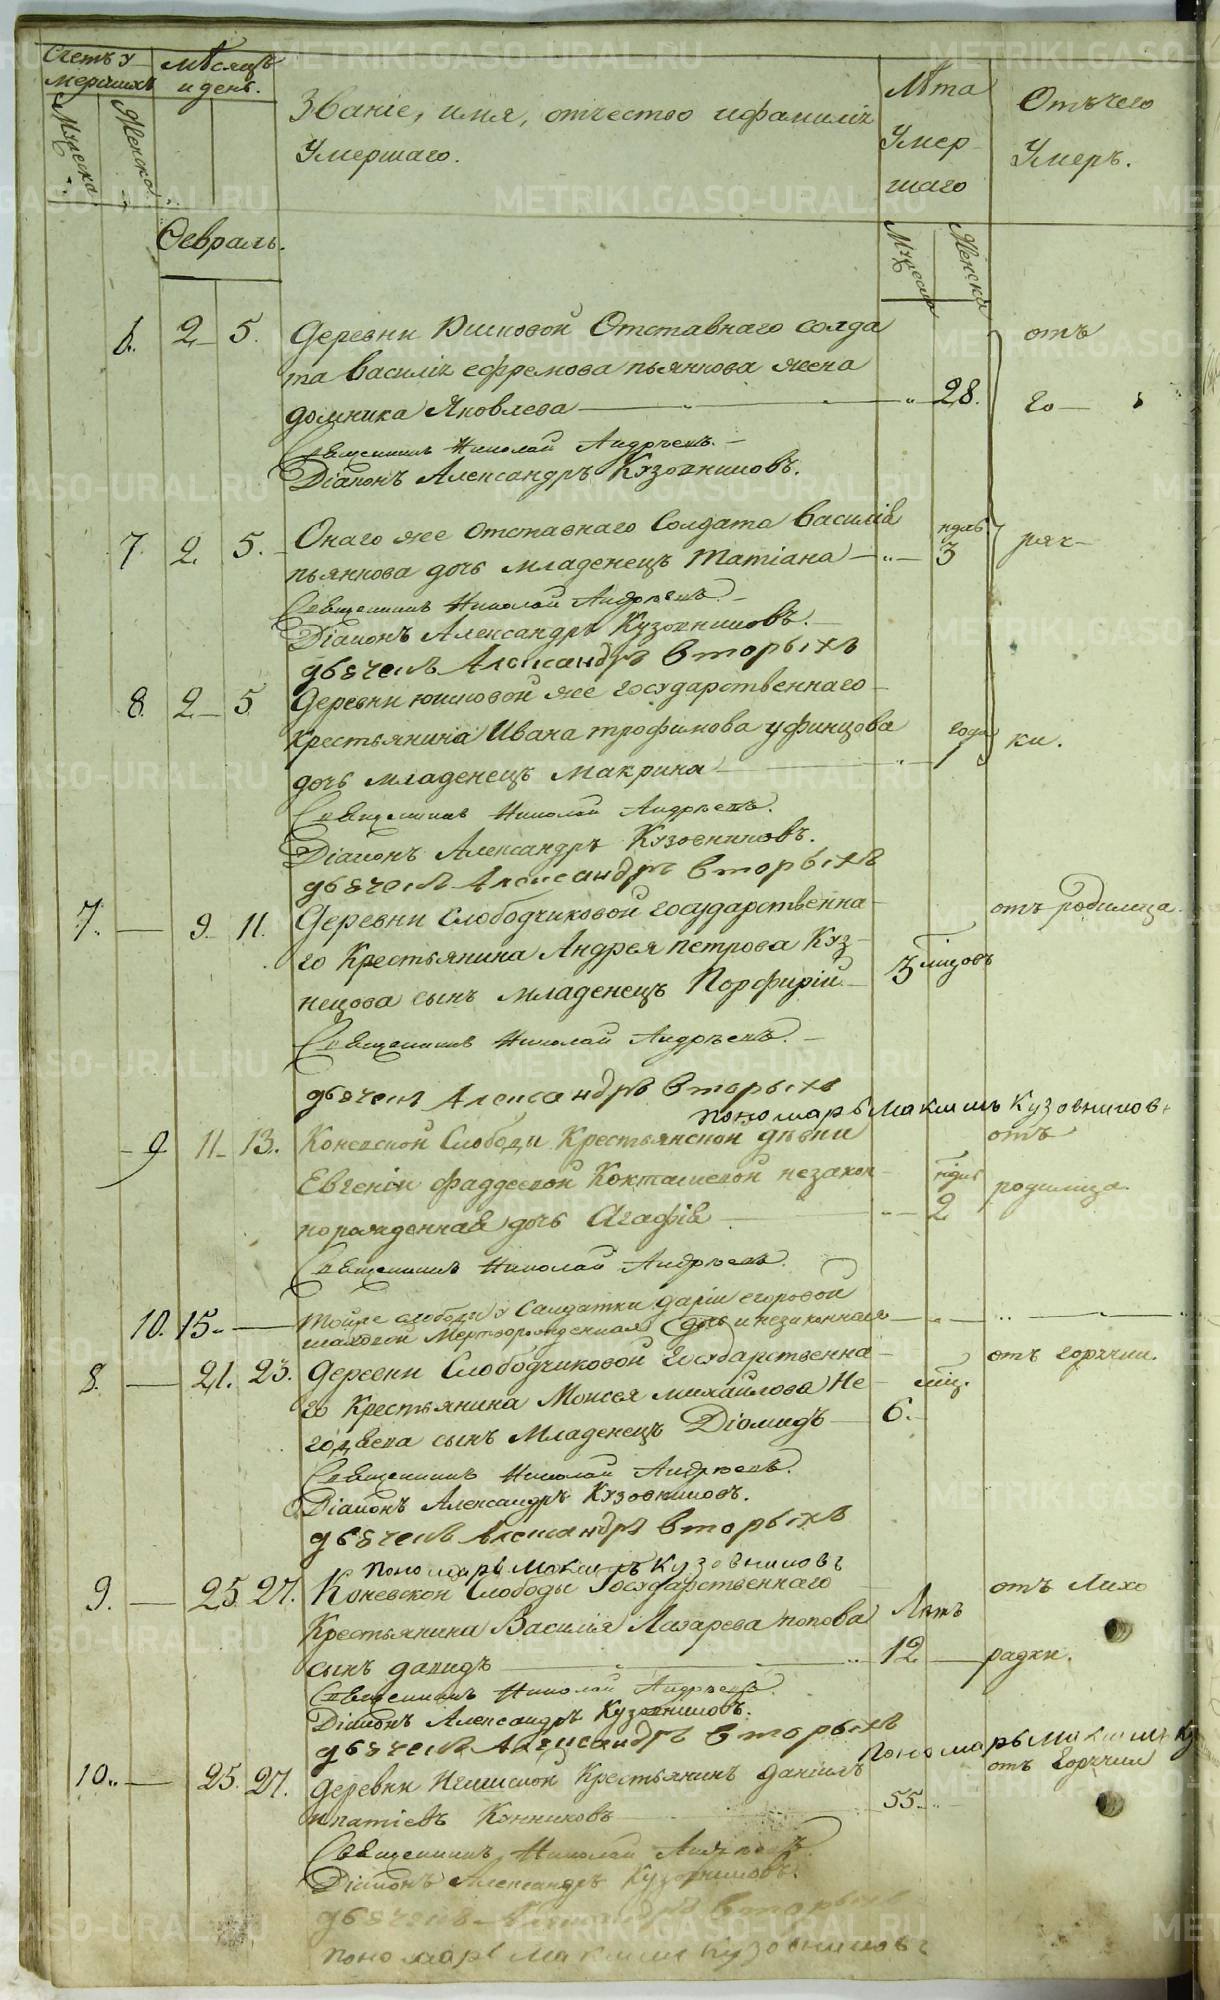 Счетъ у
мершихъ
Мѣсяцъ
и день.
Званіе, имя, отчество и фамилія
Умершаго.
Лѣта
Умер
шаго
Отъ чего
Умеръ.
Мужска
Женска
Мужска
Женска
Февраль.
6. 2. 5. Деревни Юшковой Отставнаго солда
та Василія ефремова пьянкова жена
домника Яковлева 28.
отъ
го
Священникъ Николай Андрѣевъ.
Діаконъ Александръ Кузовниковъ.
7. 2. 5. Онаго же отставнаго Солдата Василія
пьянкова дочь младенецъ Татіана 3
ряч-
Священникъ Николай Андрѣевъ.
Діаконъ Александръ Кузовниковъ.
дьячекъ Александръ Вторыхъ
8. 2. 5 Деревни юшковой же государственнаго
крестьянина Ивана трофимова уфинцова
дочь младенецъ Макрина
года
1
ки.
Священникъ Николай Андрѣевъ.
Діаконъ Александръ Кузовниковъ.
дьячекъ Александръ Вторыхъ
7. 9. 11. Деревни Слободчиковой государственна
го Крестьянина Андрея петрова Куз
нецова сынъ младенецъ Порфирій
3 мцовъ
отъ родимца.
Священникъ Николай Андрѣевъ.
дьячекъ Александръ Вторыхъ
пономарь Максимъ Кузовниковъ
9 11. 13. Коневской Слободы Крестьянской дѣвки
Евгеніи фаддеевой незакон
норожденная дочь Агафія 2
отъ
родимца.
Священникъ Николай Андрѣевъ.
10. 15. Тойже слободы у Салдатки даріи егоровой
Мертворожденная дочь и незаконная
8. 21. 23. Деревни Слободчиковой государственна
го Крестьянина Моисея михайлова Не
сынъ Младенецъ Діомидъ
мц.
6.
отъ горячки.
Священникъ Николай Андрѣевъ.
Діаконъ Александръ Кузовниковъ.
дьячекъ Александръ Вторыхъ
пономарь Максимъ Кузовниковъ
9. 25. 27. Коневской Слободы Государственнаго
Крестьянина Василія Лазарева попова
сынъ давидъ
Лѣтъ
12
отъ Лихо
радки.
Священникъ Николай Андрѣевъ.
Діаконъ Александръ Кузовниковъ.
дьячекъ Александръ Вторыхъ
пономарь Максимъ Ку
10. 25. 27. деревни Крестьянинъ даніилъ
ипатіевъ Конниковъ 55.
отъ Горячки
Священникъ Николай Андрѣевъ.
Діаконъ Александръ Кузовниковъ.
дьячекъ Александръ Вторыхъ
пономарь Максимъ Кузовниковъ